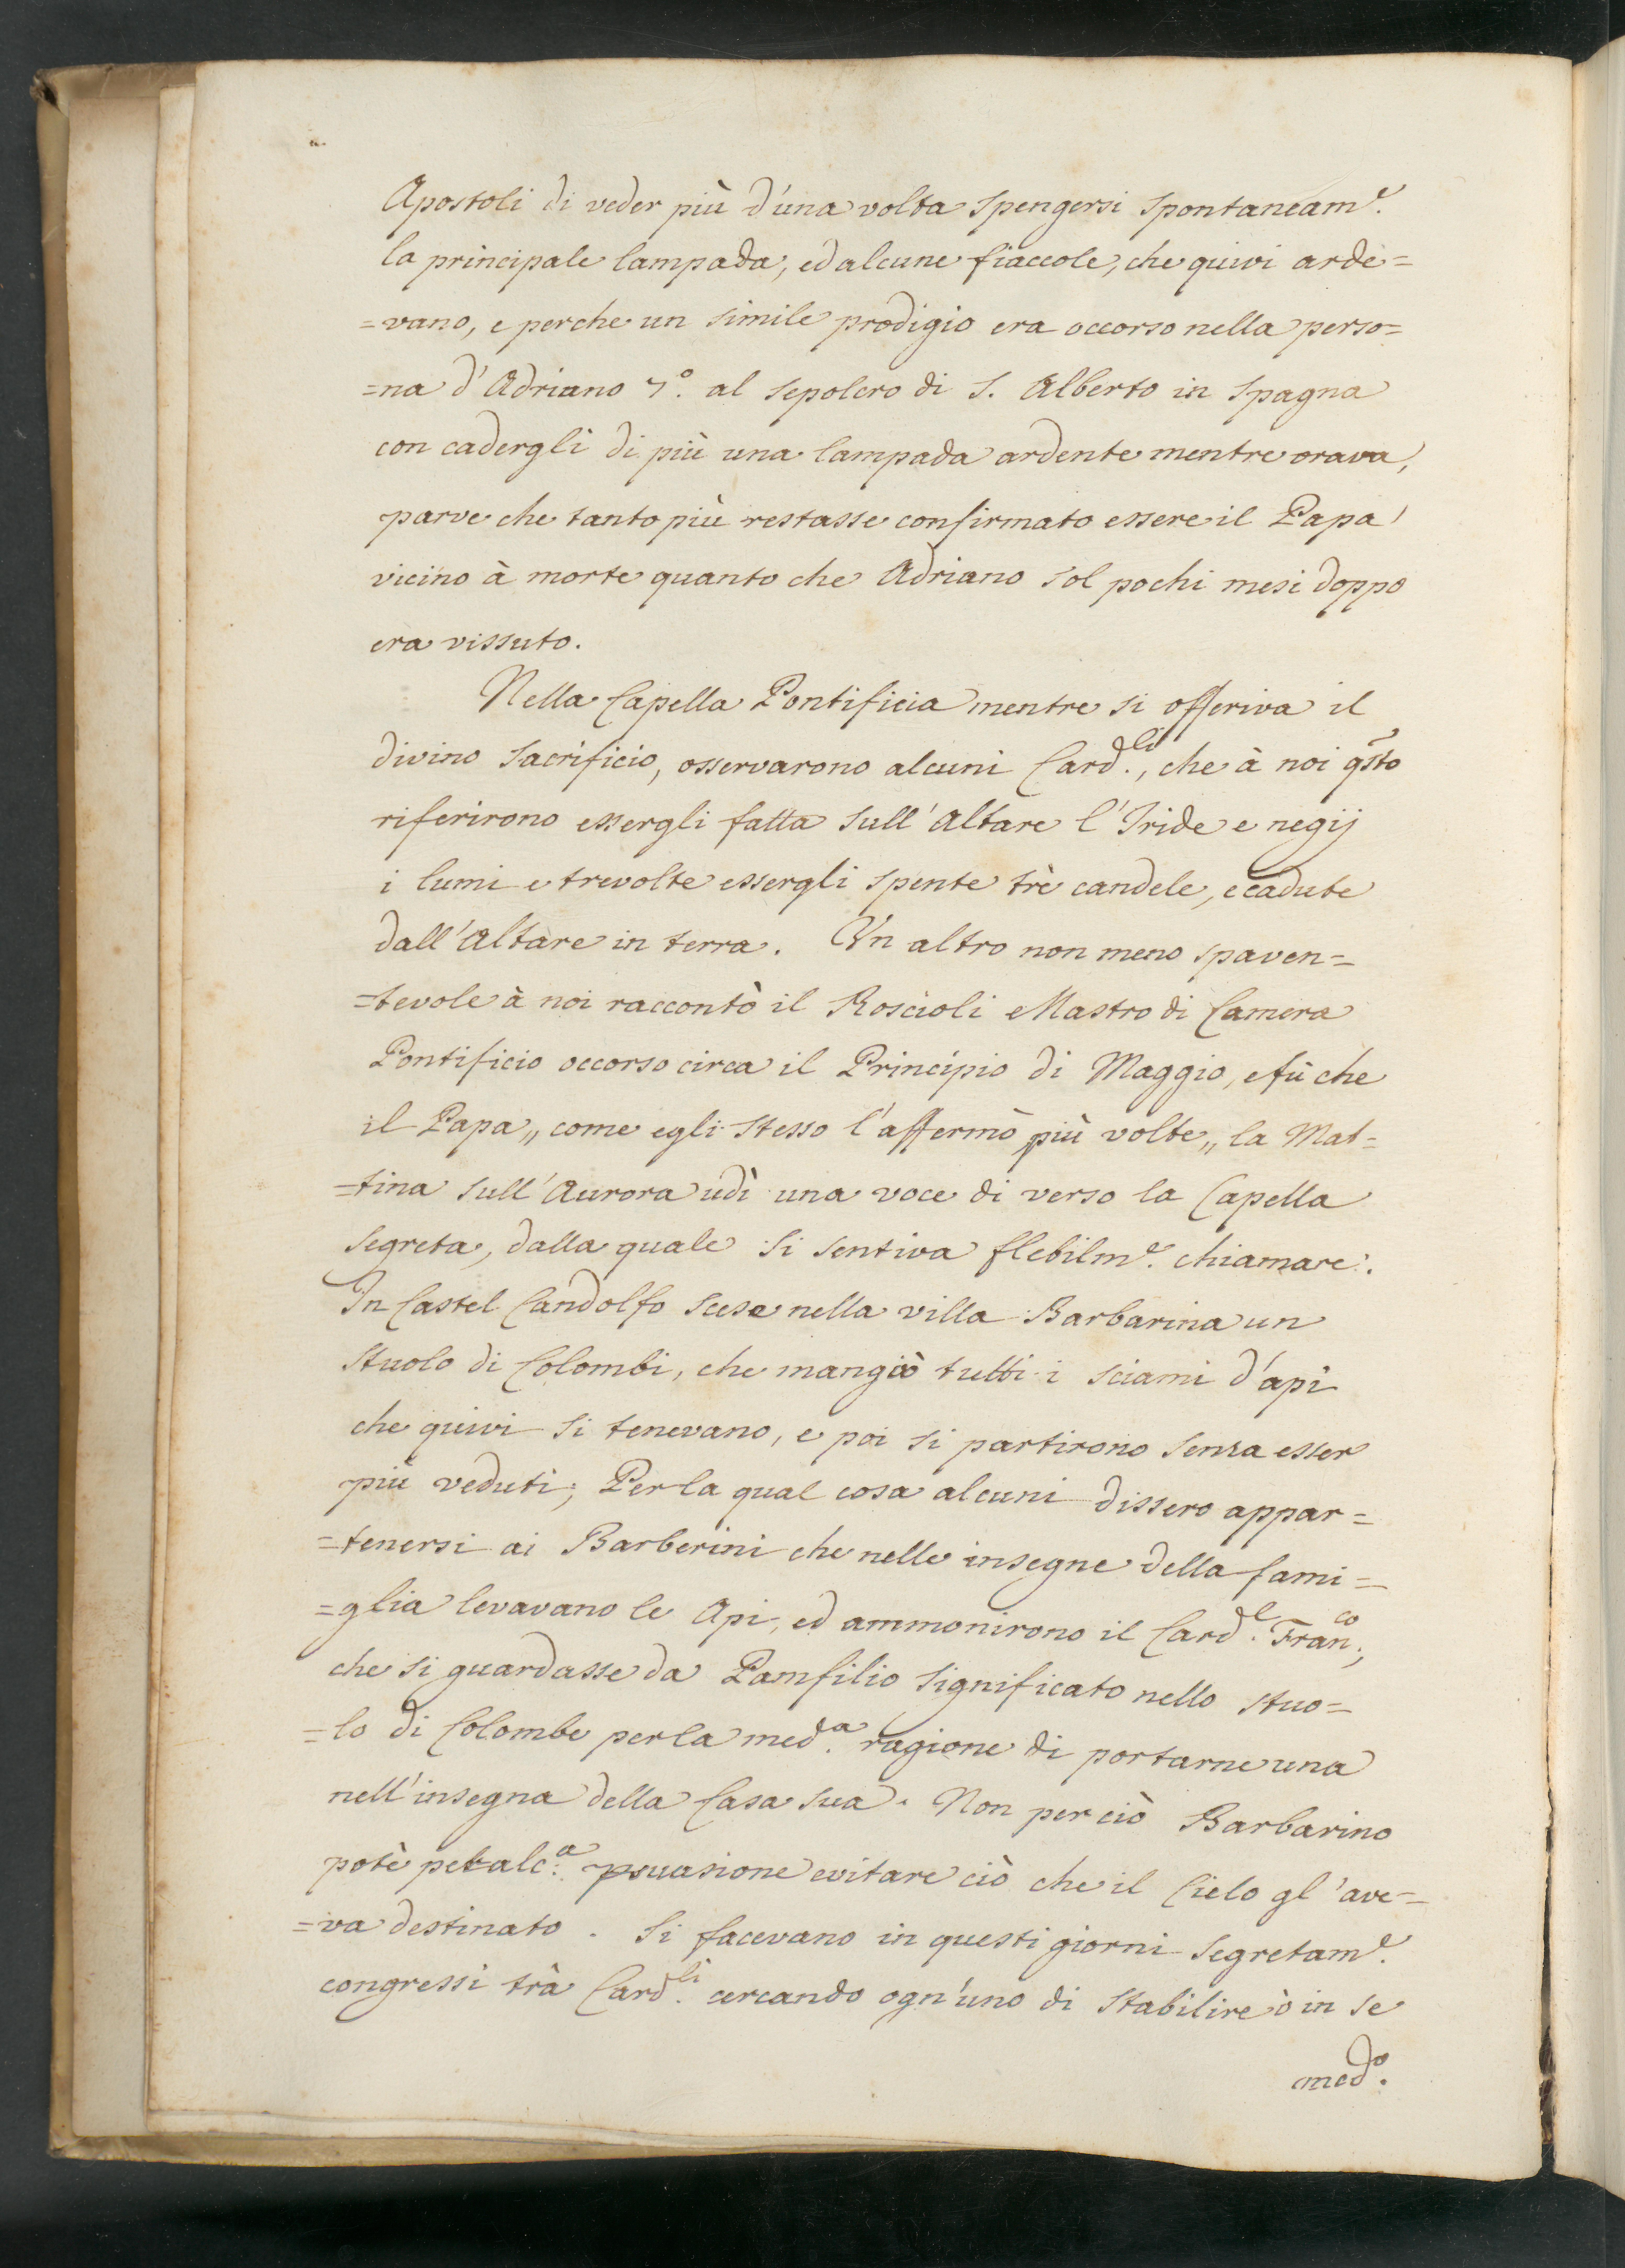 Apostoli di veder più d'una volta spengersi spontaneam.e
la principale lampada, ed alcune fiaccole, che quivi arde=
=vano, e perche un simile prodigio era occorso nella perso=
=na d'Adriano 7.o al sepolcro di S. Alberto in Spagna
con cadergli di più una lampada ardente mentre orava,
parve che tanto più restasse confirmato essere il Papa
vicino à morte quanto che Adriano sol pochi mesi doppo
era vissuto.
Nella Capella Pontificia mentre si offeriva il
divino sacrificio, osservarono alcuni Card.li, che à noi qsto
riferirono essergli fatta sull'Altare l'Iride e negij
i lumi e trevolte essergli spente trè candele, e cadute
dall'Altare in terra. Un altro non meno spaven=
=tevole à noi raccontò il Roscioli Mastro di Camera
Pontificio occorso circa il Principio di Maggio, e fù che
il Papa,, come egli stesso l'affermò più volte,, la Mat=
=tina sull'Aurora udì una voce di verso la Capella
segreta, dalla quale si sentiva flebilm.e chiamare.
In Castel Candolfo scese nella villa Barbarina un
stuolo di Colombi, che mangiò tutti i sciami d'api
che quivi si tenevano, e poi si partirono senza esser
più veduti; Per la qual cosa alcuni dissero appar=
=tenersi ai Barberini che nelle insegne della fami=
=glia levavano le Api, ed ammonirono il Card.l Fran.co,
che si guardasse da Pamfilio significato nello stuo=
=lo di Colombe per la med.a ragione di portarne una
nell'insegna della Casa sua. Non per ciò Barbarino
potè per alc.a psuasione evitare ciò che il Cielo gl'ave=
=va destinato. Si facevano in questi giorni segretam.e
congressi trà Card.li cercando ogn'uno di stabilire ò in se
med.o